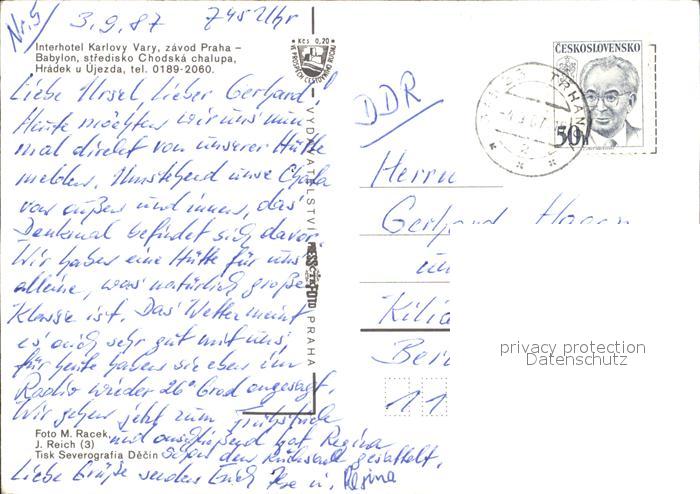 Nr. 5 3.9.87 7 45 Uhr
Interhotel Karlovy Vary, závod Praha –
Babylon, středisko Chodská chalupa,
Hrádek u Újezda, tel. 0189-2060.
Liebe Ursel, lieber Gerhard
Heute möchten wir uns nun
mal direkt von unserer Hütte
melden. Umstehend unse
von außen und innen, das
Denkmal befindet sich davor.
Wir haben eine Hütte für uns
alleine, was natürlich große
Klasse ist. Das Wetter meint
es auch sehr gut mit uns,
für heute haben sie eben im
Radio wieder 26° Grad angesagt.
Wir gehen jetzt zum Frühstück
und anschließend hat Regina
den Rucksack gestattelt.
Liebe Grüße senden Erich Ilse u. Regina
Foto M. Racek,
J. Reich (3)
Tisk Severografia Děčín
Kčs 0,20
VE PROSPĚCH CESTOVNÍHO RUCHU
VYDAVATELSTVÍ PRESSFOTO PRAHA
ČESKOSLOVENSKO
50h
TRHANOV
DDR
Herrn
Gerhard
un
Kilia
Berl
11
privacy protection
Datenschutz